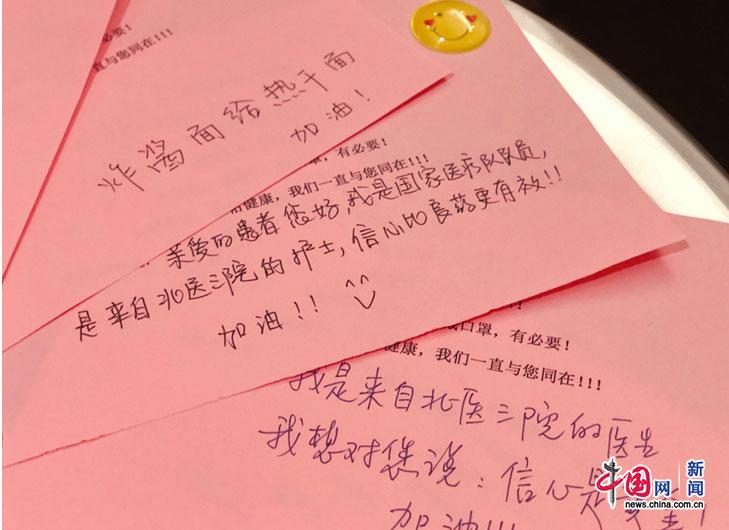 必要！
直与您同在!!!
炸酱面给热干面
加油！
，有必要！
健康，我们一直与您同在!!!
亲爱的患者您好，我是国家医疗队队员，
是来自北医三院的护士，信心比良药更有效!!
加油!!
口罩，有必要！
健康，我们一直与您同在!!!
我是来自北医三院的医生
我想对您说：信心是
加油!!!
中国网
新闻
news.china.com.cn